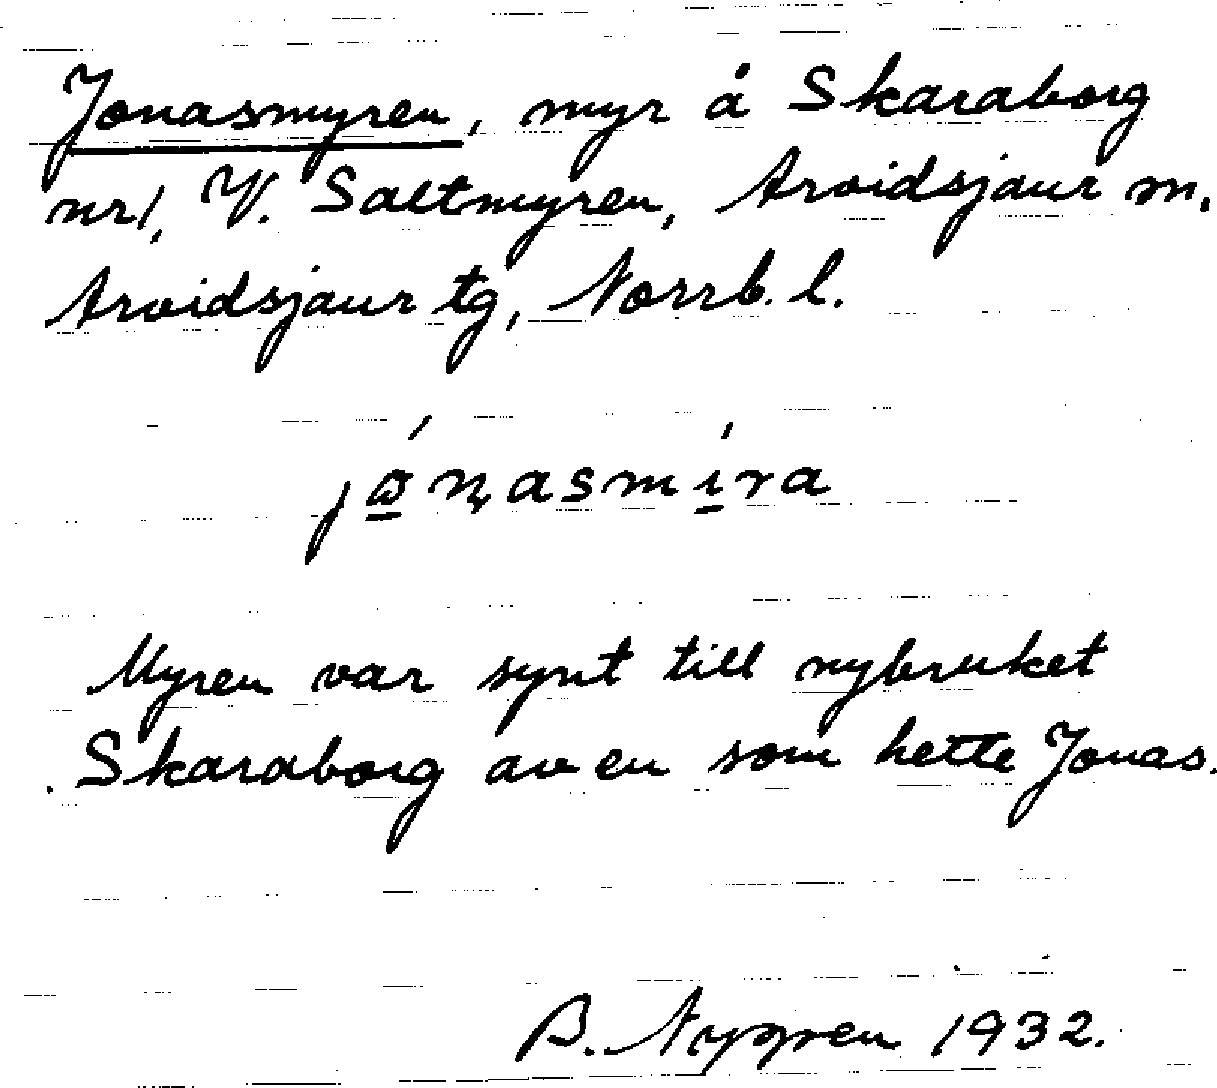 Jonasmyren, myr å Skaraborg
nr 1, V. Saltmyren, Arvidsjaur sn,
Arvidsjaur tg, Norrb. l.
Myren var synt till nybruket
Skaraborg av en som hette Jonas.
B. Nygren 1932.